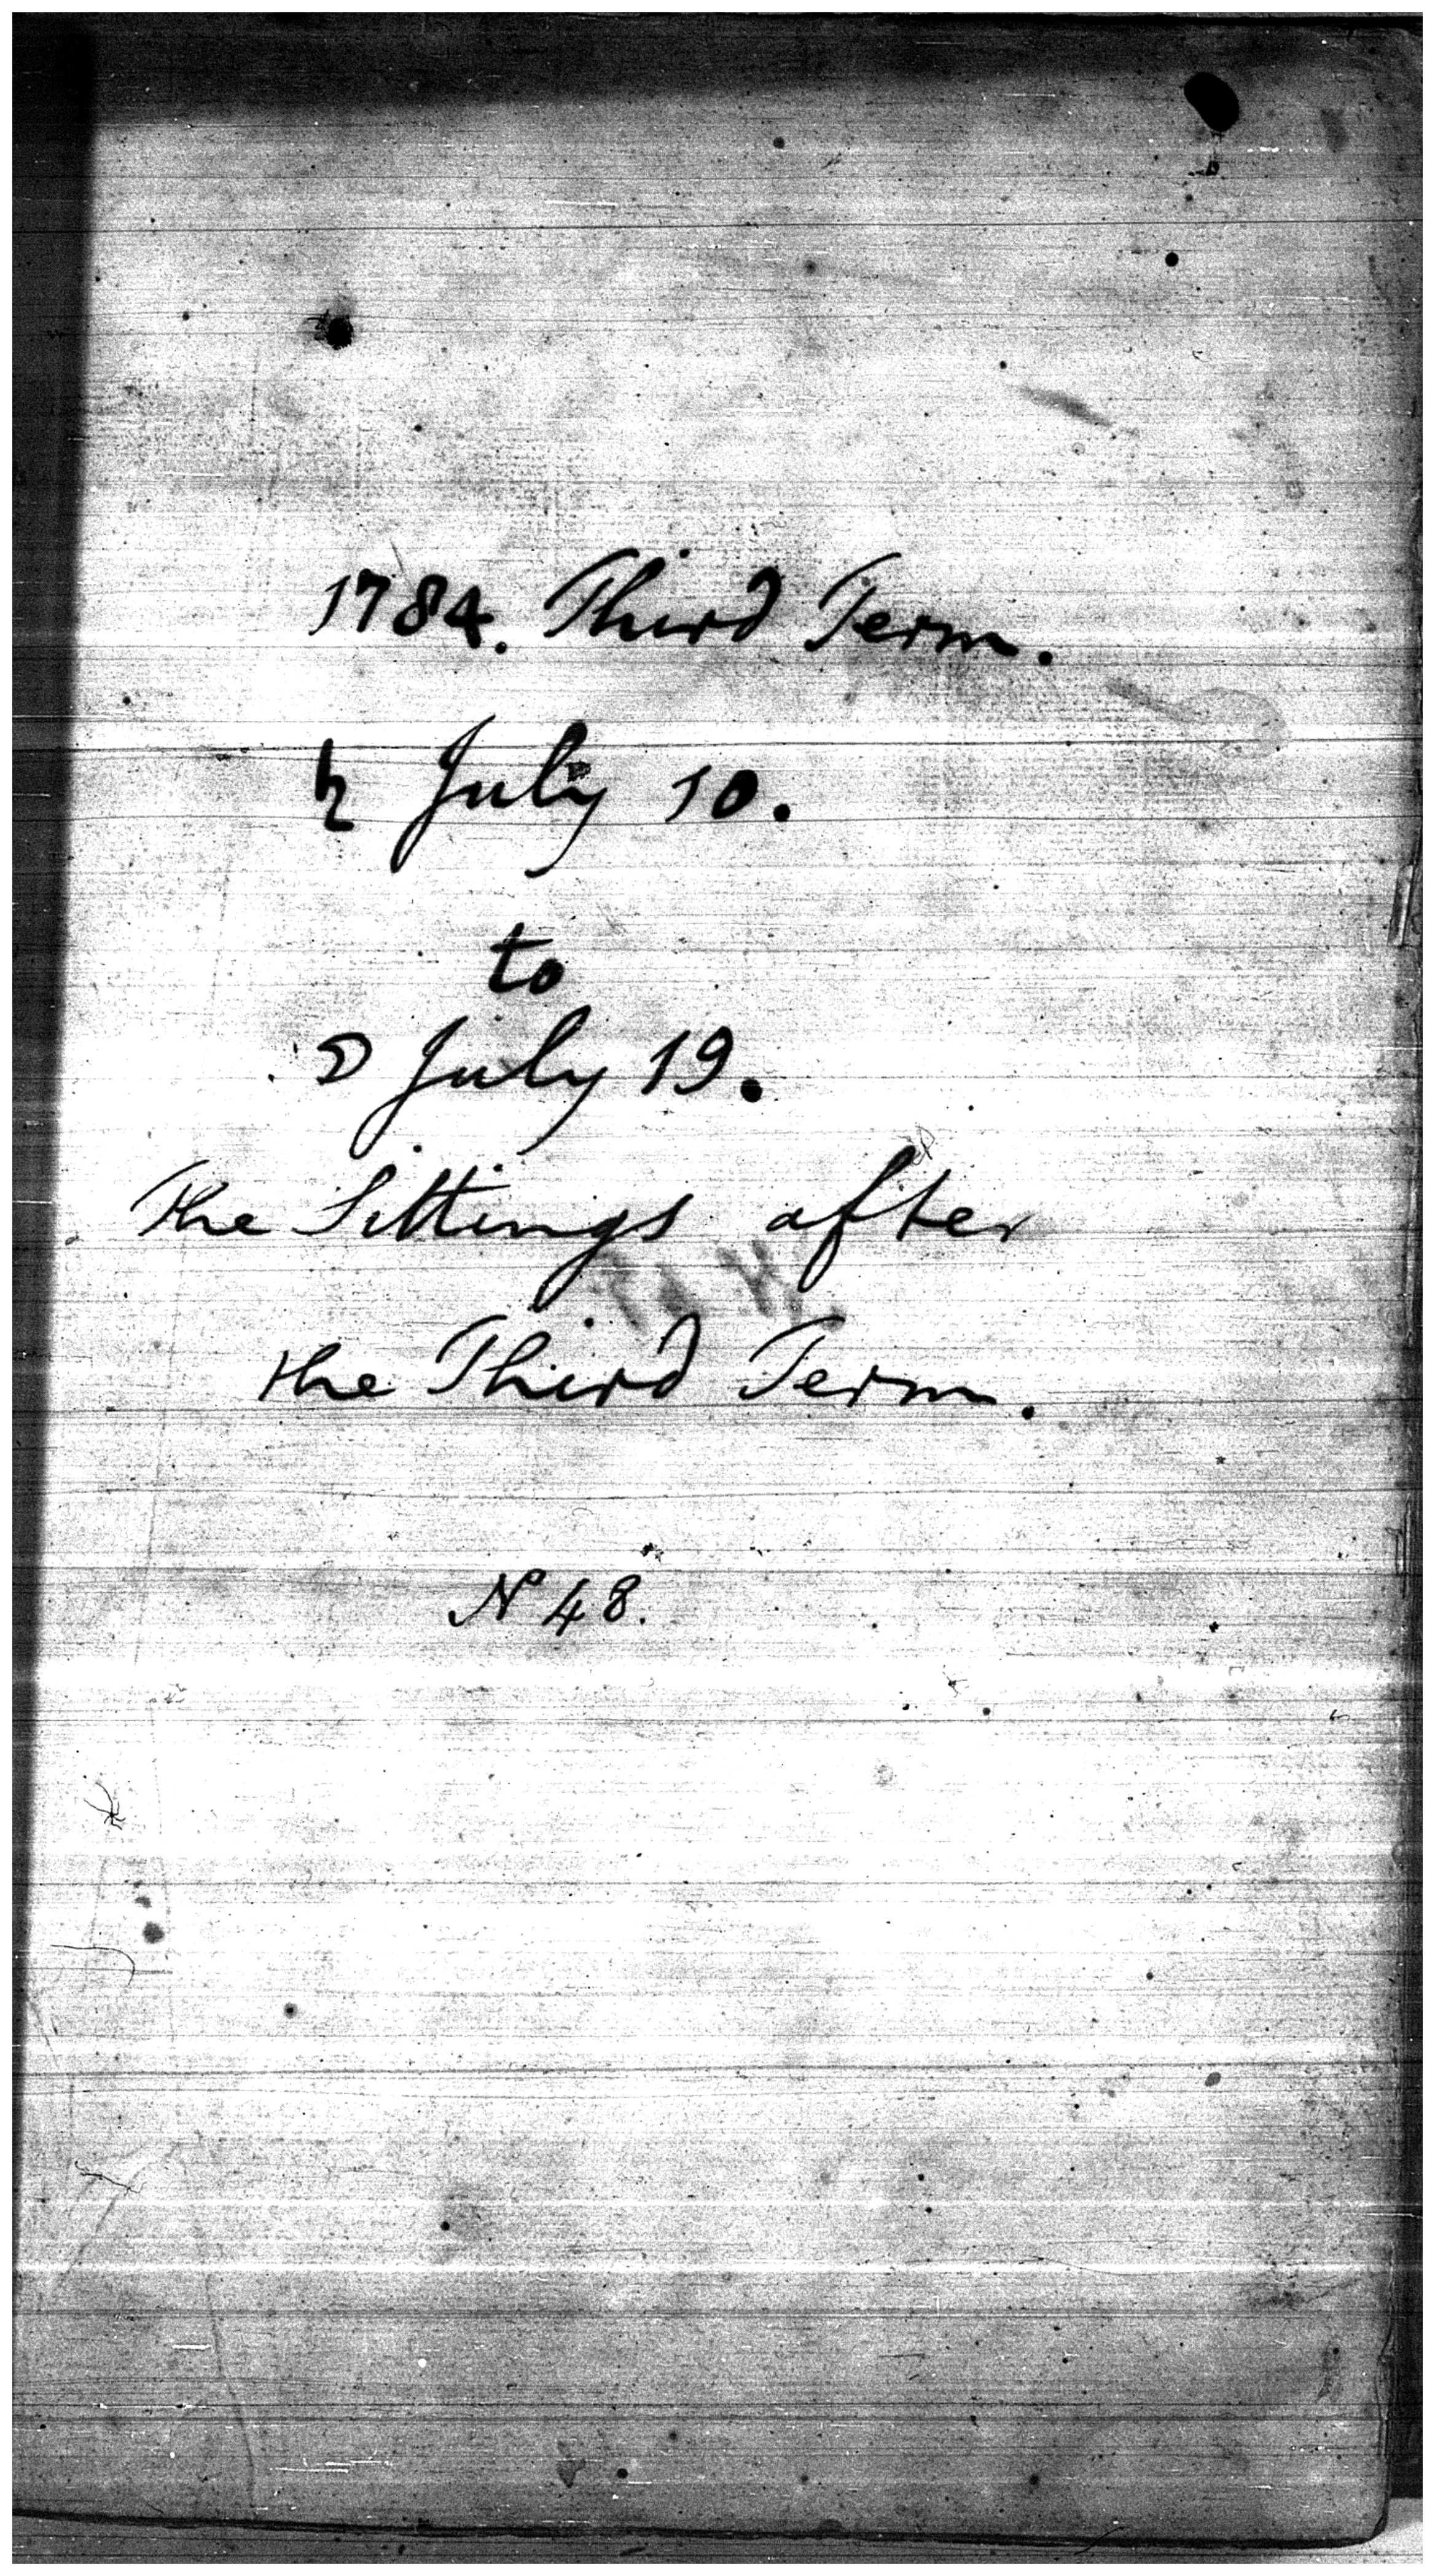 1784. Third Term.
♄ July 10.
to
☽ July 19.
The Sittings after
the Third Term.
No 48.